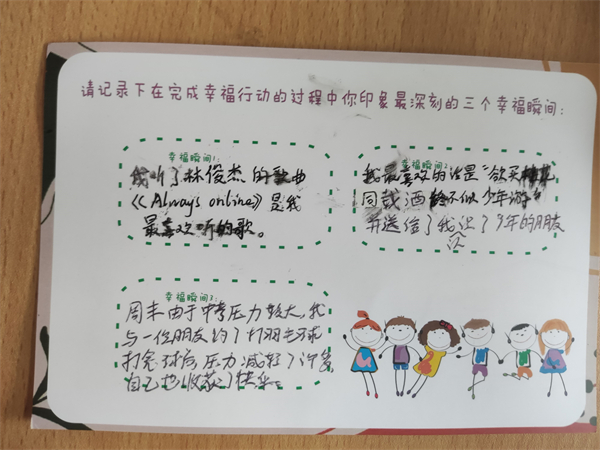 请记录下在完成幸福行动的过程中你印象最深刻的三个幸福瞬间：
幸福瞬间1:
我听了林俊杰的歌曲
《Always online》是我
最喜欢听的歌。
幸福瞬间2:
我最喜欢的诗是“欲买桂花
同载酒终不似少年游”
并送给了我认识了9年的朋友
幸福瞬间3:
周末由于中考压力较大,我
与一位朋友约了打羽毛球
打完球后压力减轻了许多
自己也收获了快乐。